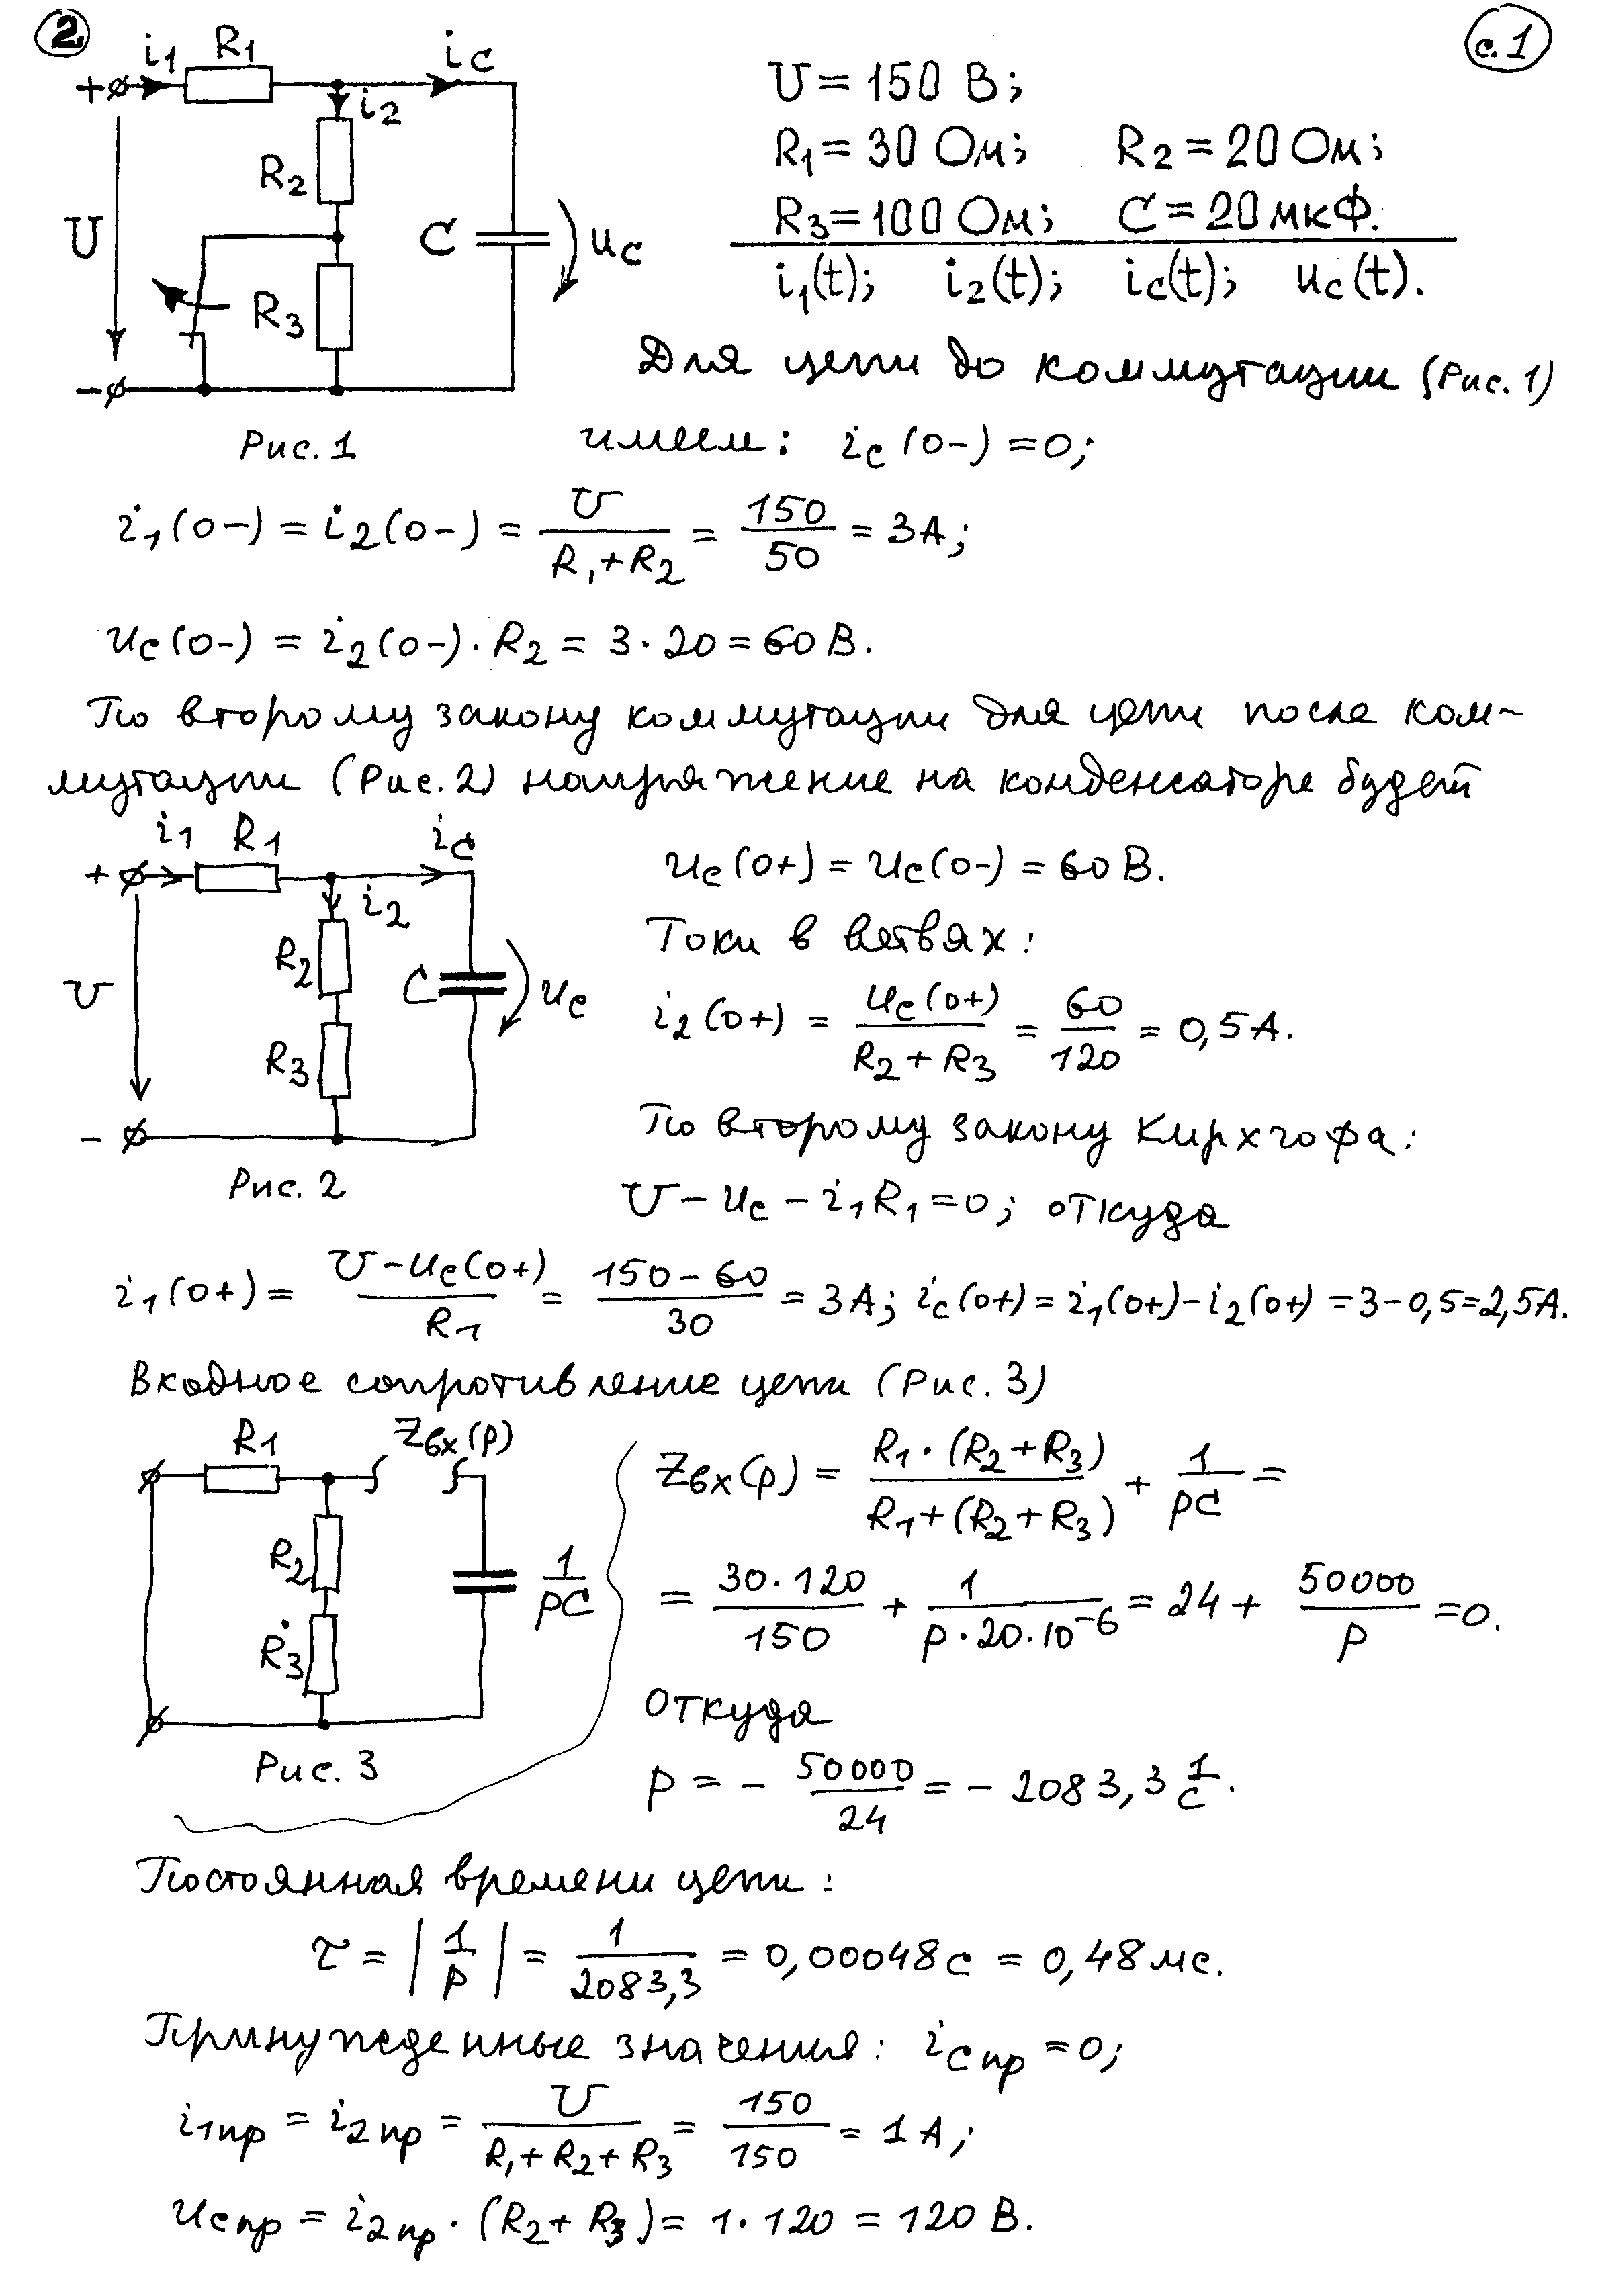 2
c.1
i1 R1 iC
+
i2
R2
U C uC
R3
-
Рис. 1
U = 150 В;
R1 = 30 Ом; R2 = 20 Ом;
R3 = 100 Ом; C = 20 мкФ.
i1(t); i2(t); iC(t); uC(t).
Для цепи до коммутации (Рис. 1)
имеем: iC(0-) = 0;
i1(0-) = i2(0-) = U / (R1+R2) = 150 / 50 = 3А;
uC(0-) = i2(0-) · R2 = 3 · 20 = 60 В.
По второму закону коммутации для цепи после ком-
мутации (Рис. 2) напряжение на конденсаторе будет
i1 R1 iC
+
i2
R2
U C uC
R3
-
Рис. 2
uC(0+) = uC(0-) = 60 В.
Токи в ветвях:
i2(0+) = uC(0+) / (R2 + R3) = 60 / 120 = 0,5 А.
По второму закону Кирхгофа:
U - uC - i1R1 = 0; откуда
i1(0+) = (U - uC(0+)) / R1 = (150 - 60) / 30 = 3А; iC(0+) = i1(0+) - i2(0+) = 3 - 0,5 = 2,5А.
Входное сопротивление цепи (Рис. 3)
R1 Zвх(p)
R2
1 / pC
R3
Рис. 3
Zвх(p) = R1 · (R2 + R3) / (R1 + (R2 + R3)) + 1 / pC =
= 30 · 120 / 150 + 1 / (p · 20 · 10^-6) = 24 + 50000 / p = 0.
Откуда
p = - 50000 / 24 = - 2083,3 1/с.
Постоянная времени цепи:
τ = | 1 / p | = 1 / 2083,3 = 0,00048 с = 0,48 мс.
Принужденные значения: iC пр = 0;
i1пр = i2пр = U / (R1 + R2 + R3) = 150 / 150 = 1 А;
uC пр = i2пр · (R2 + R3) = 1 · 120 = 120 В.